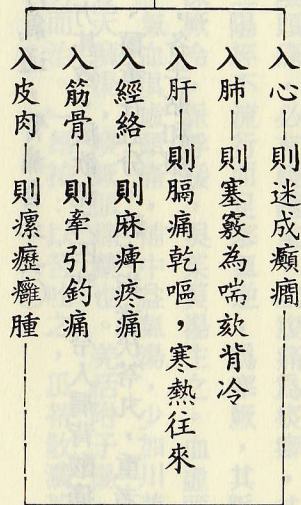 入心—則迷成癲癇
入肺—則塞竅為喘欬背冷
入肝—則膈痛乾嘔,寒熱往來
入經絡—則麻痺疼痛
入筋骨—則牽引釣痛
入皮肉—則瘰癧癰腫